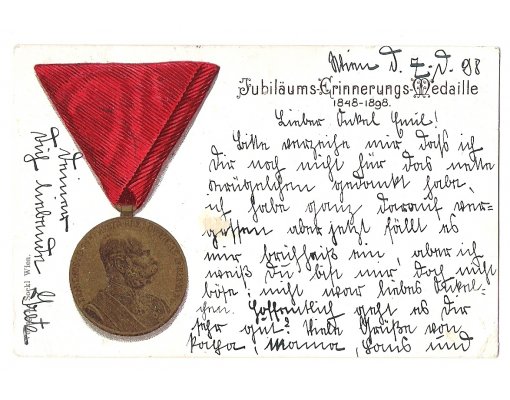 Wien d. 7. d. 98
Jubiläums-Erinnerungs-Medaille
1848-1898.
Lieber Onkel Emil!
Bitte verzeihe mir daß ich
Dir noch nicht für das nette
gedankt habe,
ich habe ganz darauf ver-
gessen aber jetzt fällt es
mir ein, aber ich
weiß Du bist mir doch nicht
böse; nicht war liebes Onkel-
chen. Hoffentlich geht es Dir
sehr gut? Viele Grüße von
Papa, Mama, Hans und
Deiner
Dich liebenden Grete
Wien.